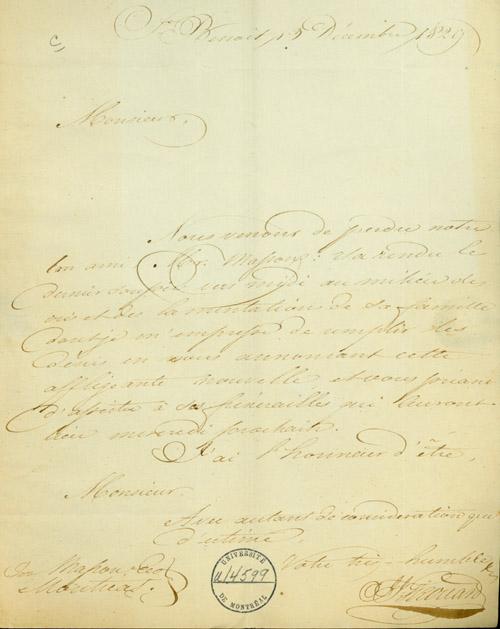 C
St Benoit, 15 Décembre 1829
Monsieur,
Nous venons de perdre notre
bon ami Mr. Masson: il a rendu le
dernier soupir vers midi au milieu des
cris et des lamentations de sa famille
dont je m'empresse de remplir les
désirs en vous annonçant cette
affligeante nouvelle et vous priant
d'assister à ses funérailles qui auront
lieu mercredi prochain.
J'ai l'honneur d'être,
Monsieur.
Avec autant de considération que
d'estime,
Votre très-humble
Masson
Montréal.
UNIVERSITÉ
14599
DE MONTRÉAL